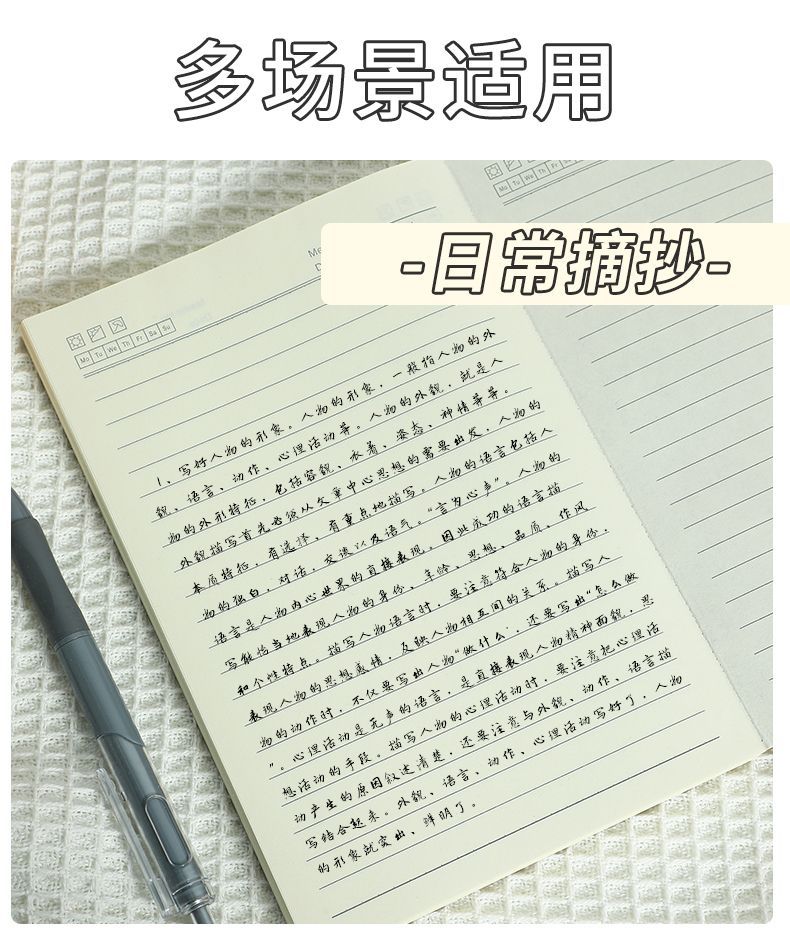 多场景适用
-日常摘抄-
Me
D
Mo Tu We Th Fr Sa Su
Mo Tu We Th Fr Sa
1、写好人物的形象。人物的形象，一般指人物的外
貌、语言、动作、心理活动等。人物的外貌，就是人
物的外形特征，包括容貌、衣着、姿态、神情等等。
外貌描写首先必须从文章中心思想的需要出发，人物的
本质特征，有选择，有重点地描写。人物的语言包括人
物的独白，对话，交谈以及语气。“言为心声”。人物的
语言是人物内心世界的直接表现。因此成功的语言描
写能恰当地表现人物的身份、年龄、思想、品质、作风
和个性特点。描写人物语言时，要注意符合人物的身份，
表现人物的思想感情，反映人物相互间的关系。描写人
物的动作时，不仅要写出人物“做什么”，还要写出“怎么做
”。心理活动是无声的语言，是直接表现人物精神面貌，思
想活动的手段。描写人物的心理活动时，要注意把心理活
动产生的原因叙述清楚，还要注意与外貌、动作、语言描
写结合起来。外貌、语言、动作、心理活动写好了，人物
的形象就突出、鲜明了。